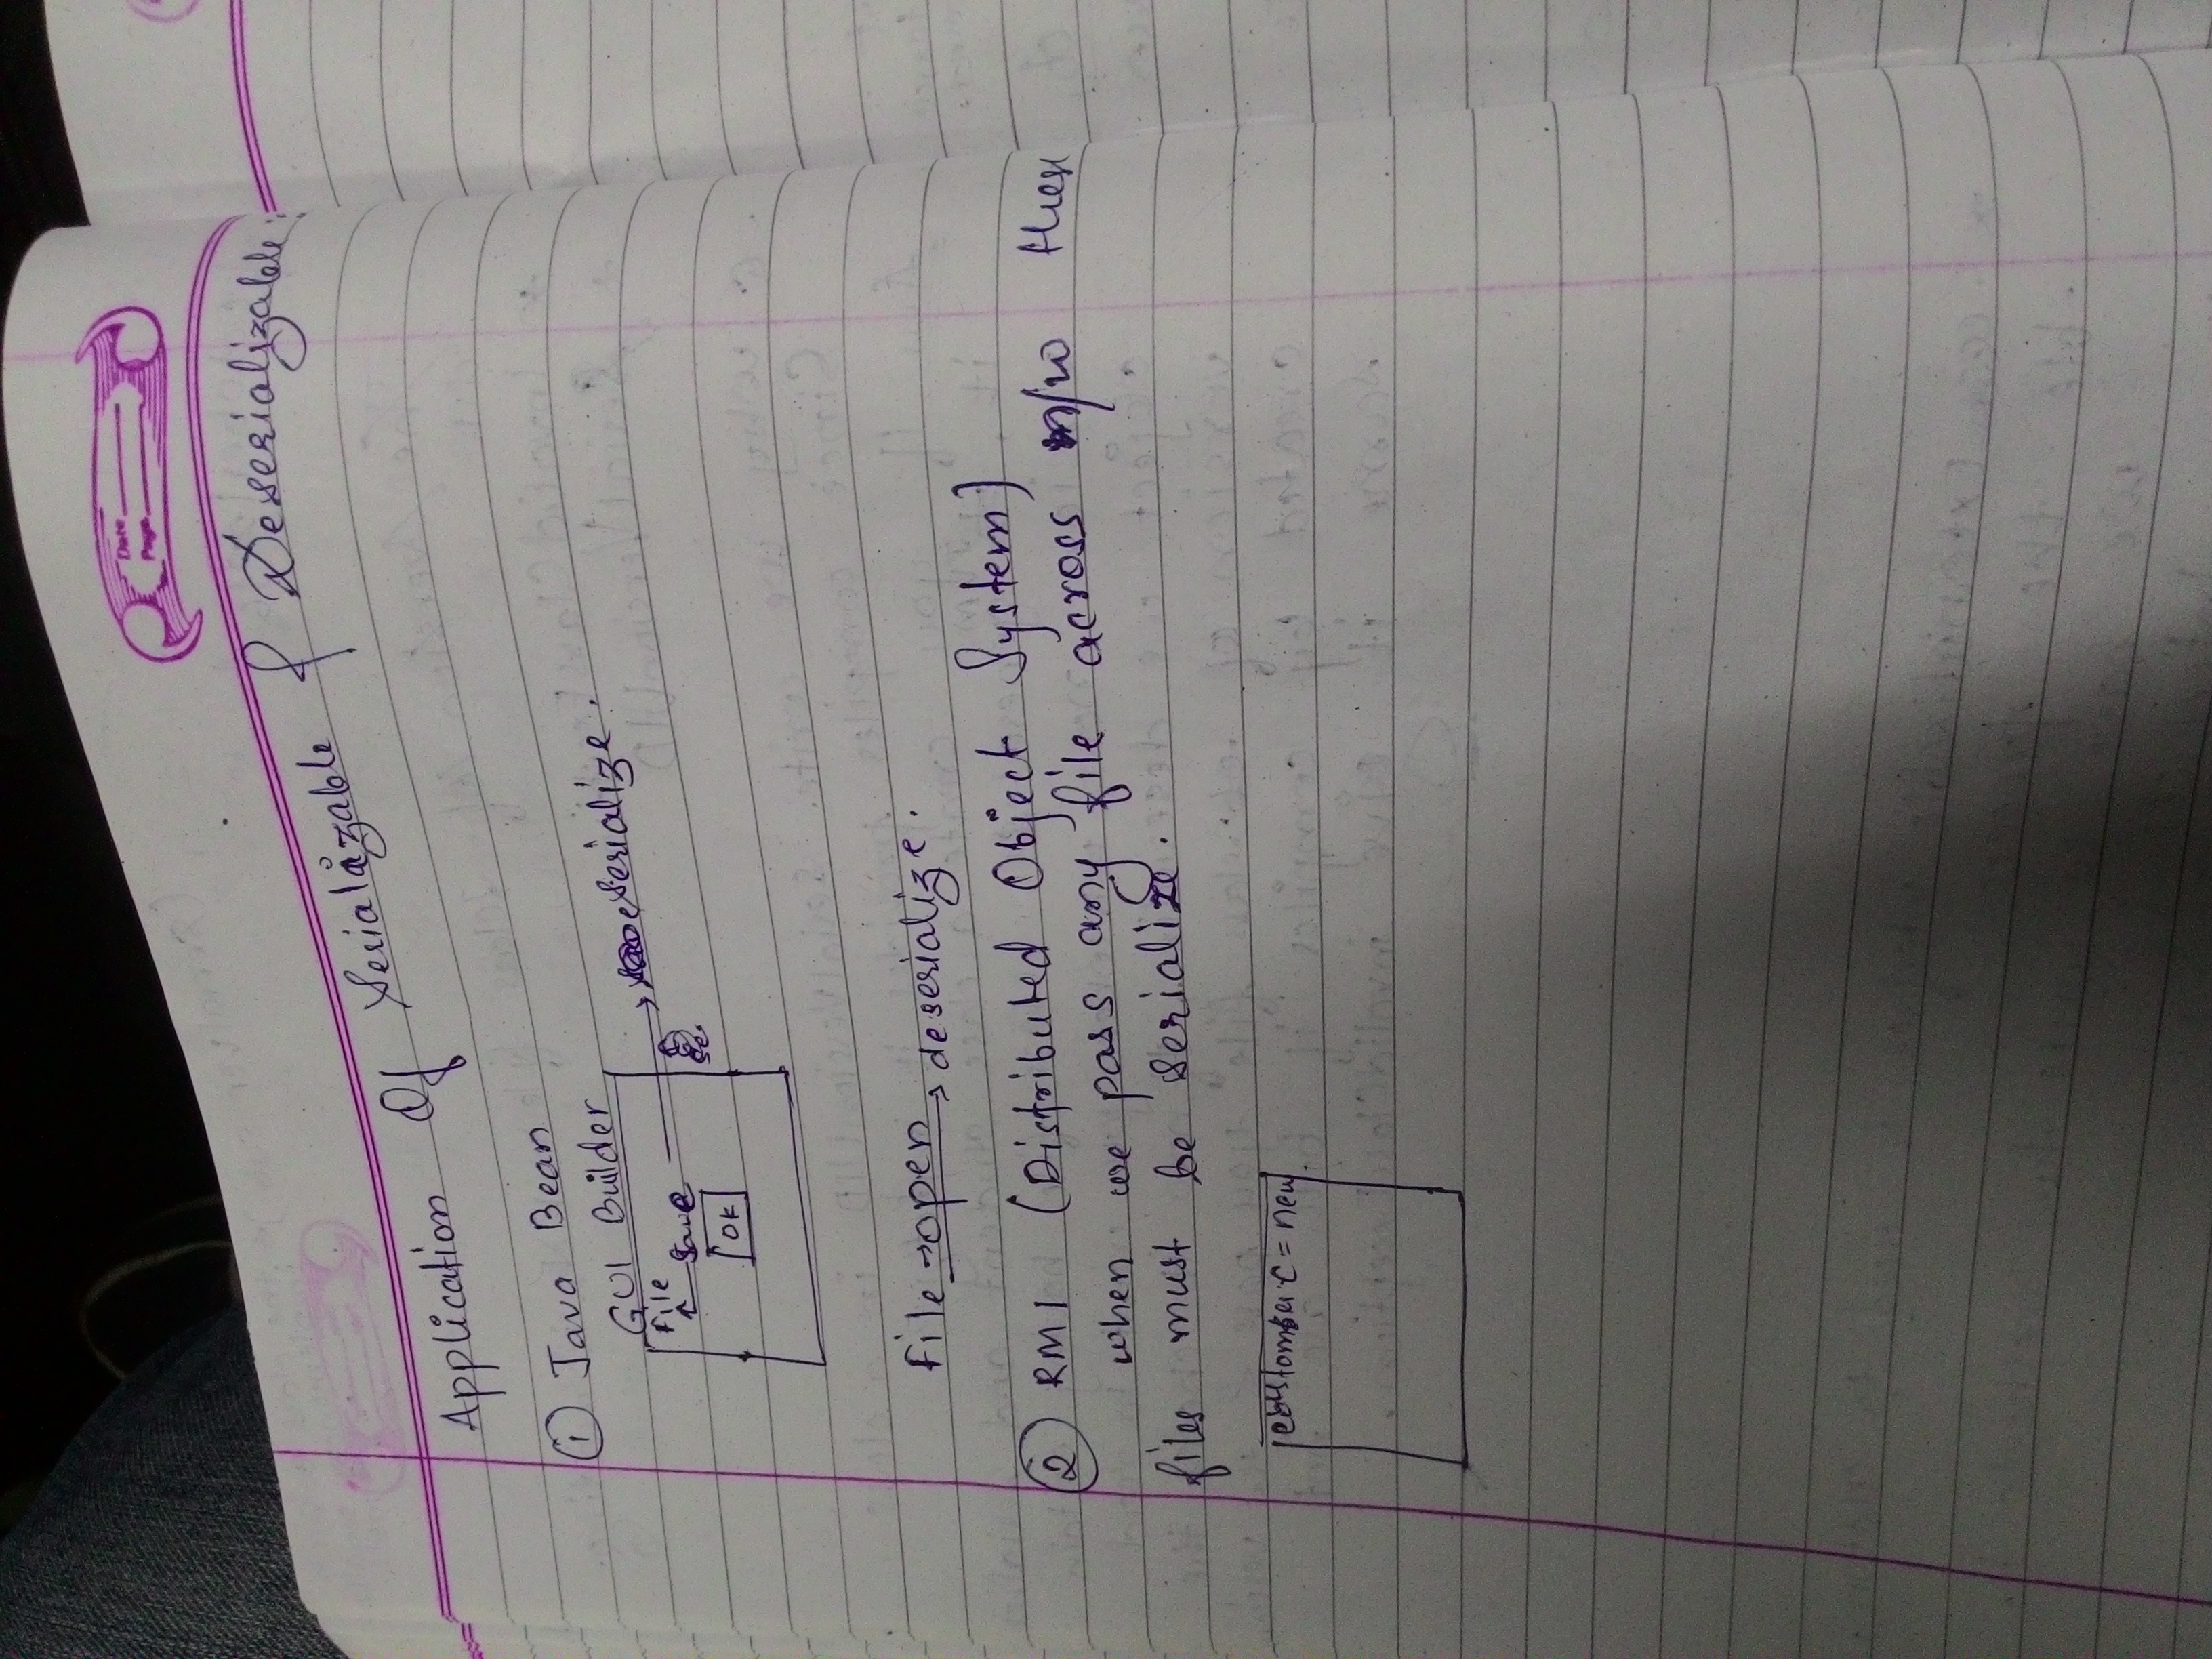 Date
Page
Application Of Serializable & Deserializable:
① Java Bean
GUI Builder
File
Save → serialize.
OK
File → open → deserialize.
② RMI (Distributed Object System)
when we pass any file across n/w these
files must be serialize.
customer c = new